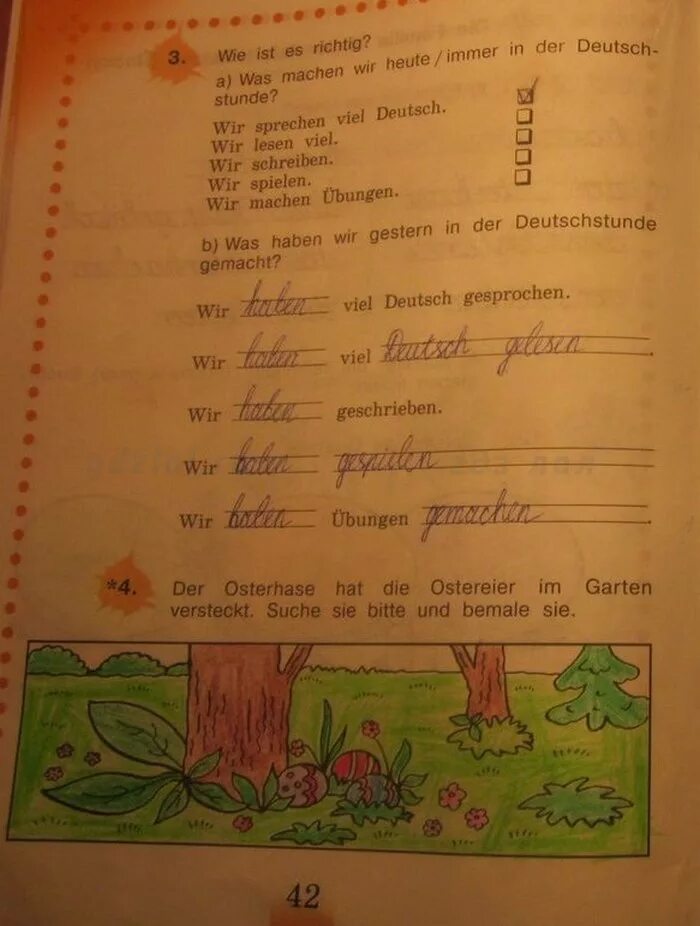 3. Wie ist es richtig?
a) Was machen wir heute / immer in der Deutsch-
stunde?
Wir sprechen viel Deutsch.
Wir lesen viel.
Wir schreiben.
Wir spielen.
Wir machen Übungen.
b) Was haben wir gestern in der Deutschstunde
gemacht?
Wir haben viel Deutsch gesprochen.
Wir haben viel Deutsch gelesen.
Wir haben geschrieben.
Wir haben gespielen
Wir haben Übungen gemachen.
*4. Der Osterhase hat die Ostereier im Garten
versteckt. Suche sie bitte und bemale sie.
42